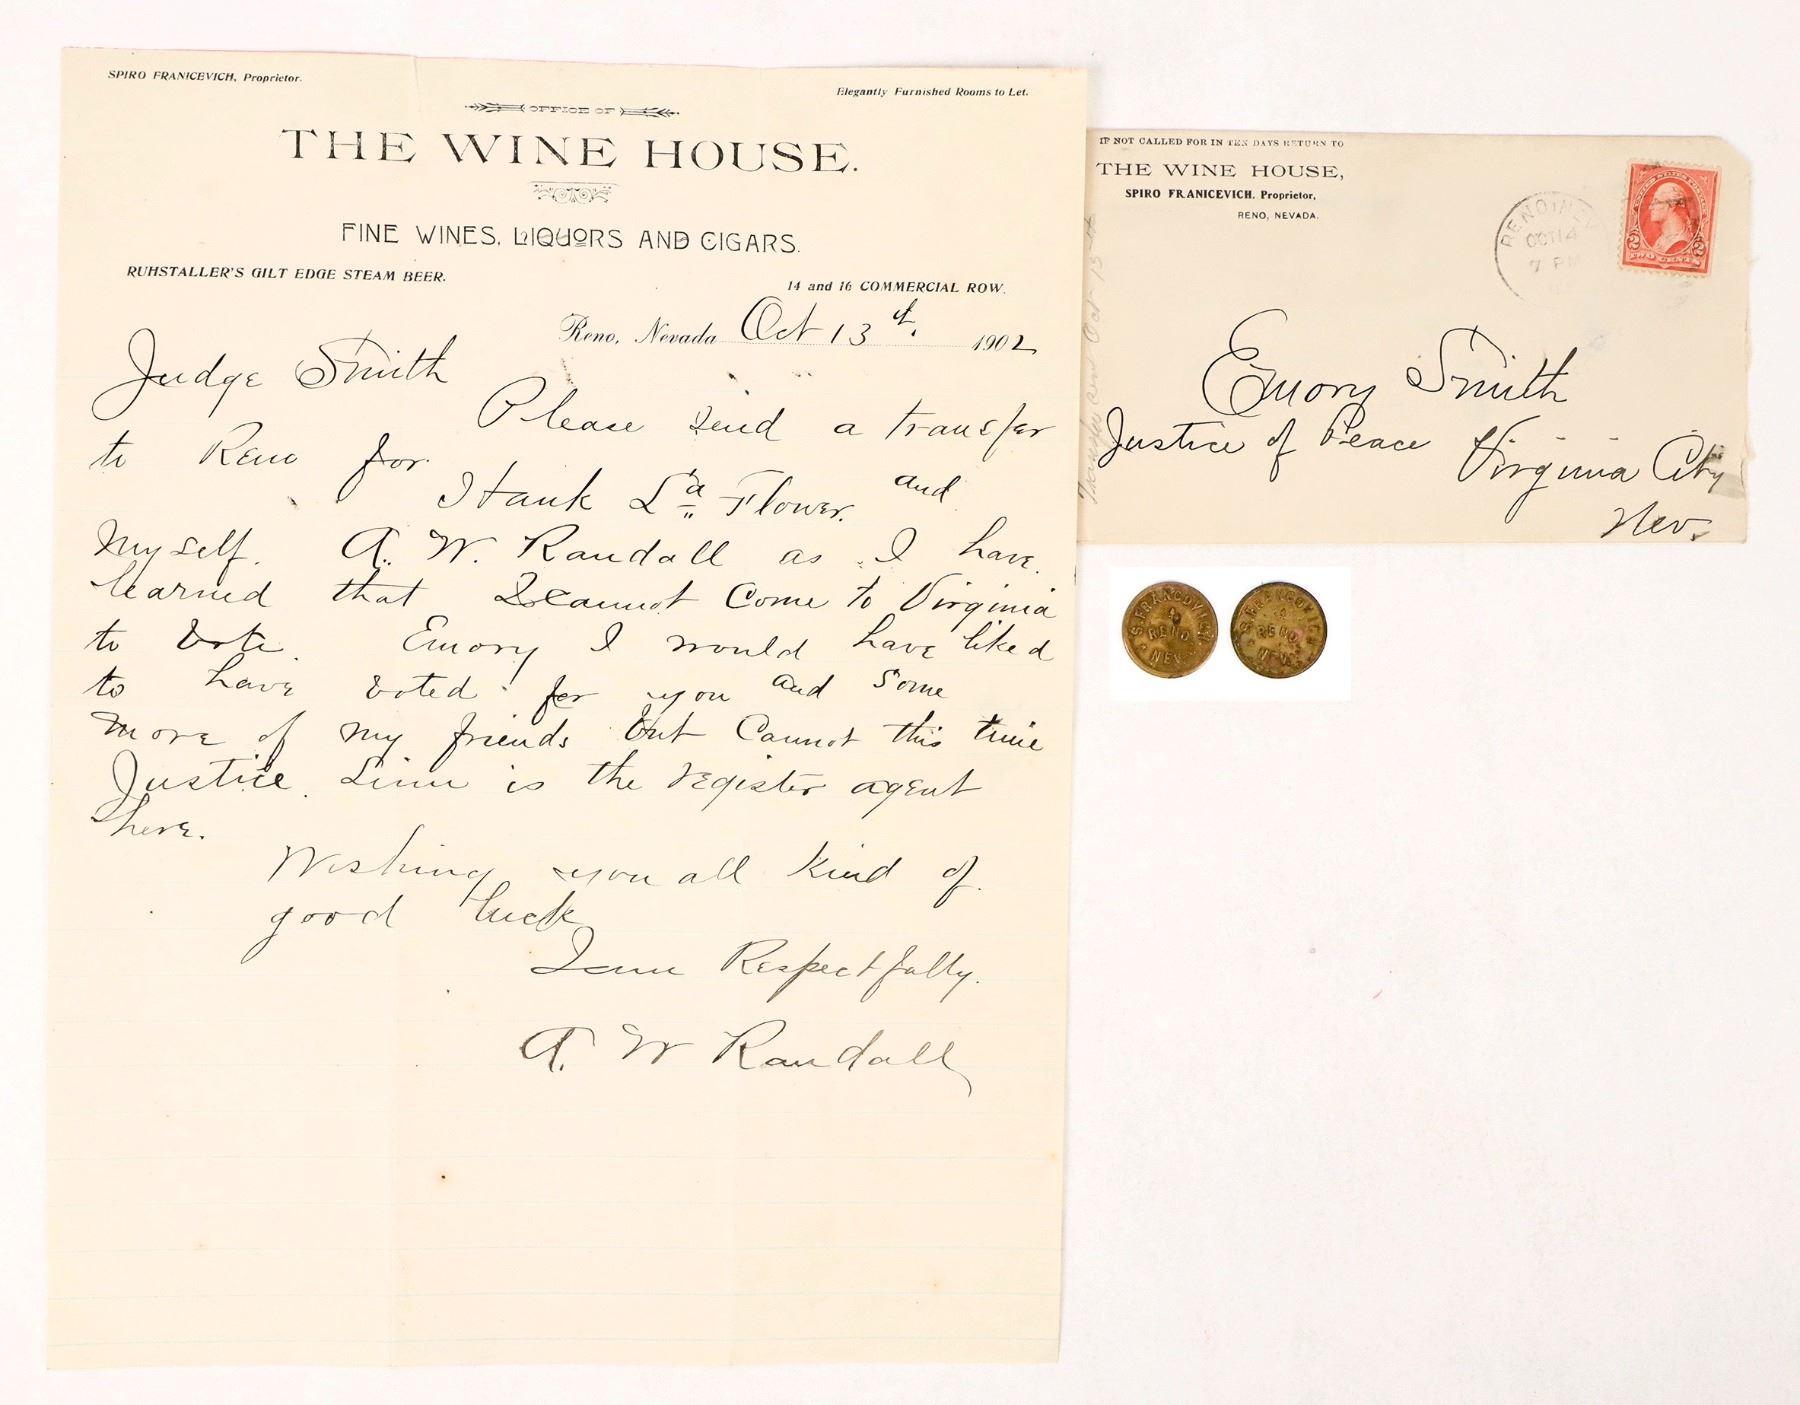 SPIRO FRANICEVICH, Proprietor.
Elegantly Furnished Rooms to Let.
OFFICE OF
THE WINE HOUSE.
FINE WINES, LIQUORS AND CIGARS.
RUHSTALLER'S GILT EDGE STEAM BEER.
14 and 16 COMMERCIAL ROW.
Reno, Nevada Oct 13th. 1902
Judge Smith
Please send a transfer
to Reno for
Hank La Flower. and
Myself. A. W. Randall as I have
learned that I cannot Come to Virginia
to vote. Emory I would have liked
to have voted for you and some
more of my friends but Cannot this time
Justice Linn is the register agent
here.
Wishing you all kind of
good luck
I am Respectfully.
A. W Randall
IF NOT CALLED FOR IN TEN DAYS RETURN TO
THE WINE HOUSE,
SPIRO FRANICEVICH, Proprietor,
RENO, NEVADA.
RENO, NEV
OCT 14
7 PM
2 2
Emory Smith
Justice of Peace Virginia City
Nev.
Oct 13
S. FRANCOVICH
RENO
NEV.
S. FRANCOVICH
RENO
NEV.